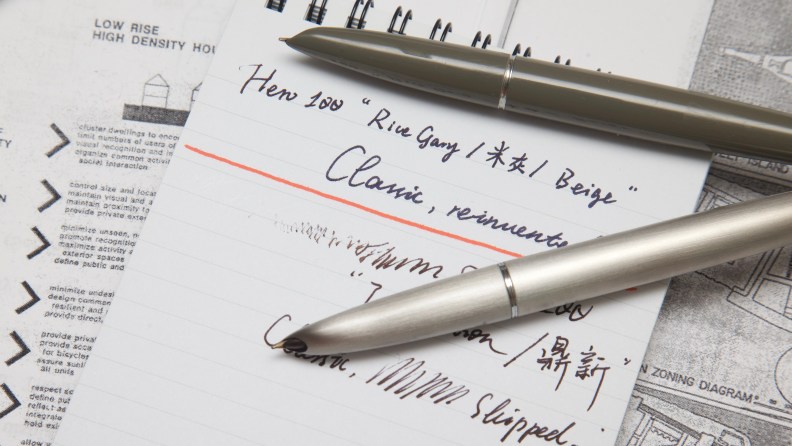 LOW RISE
HIGH DENSITY HOU
cluster dwellings to enco
limit numbers of users of
visual recognition and i
organize common activi
social interaction
control size and locat
maintain visual and a
maintain proximity to
provide private exter
minimize unseen, n
promote recognition
maximize activity
exterior spaces
define public and
minimize undesi
design common
resilient and
provide direct
provide privat
provide acce
for bicycles
assure suita
all units
respect sc
define put
reflect as
integrate
hold exi
allow v
Hero 100 "Rice Gang / 米灰 / Beige"
Classic, reinvente
100
/ 鼎新"
Classic,
Skipped.
ISLAND
N ZONING DIAGRAM